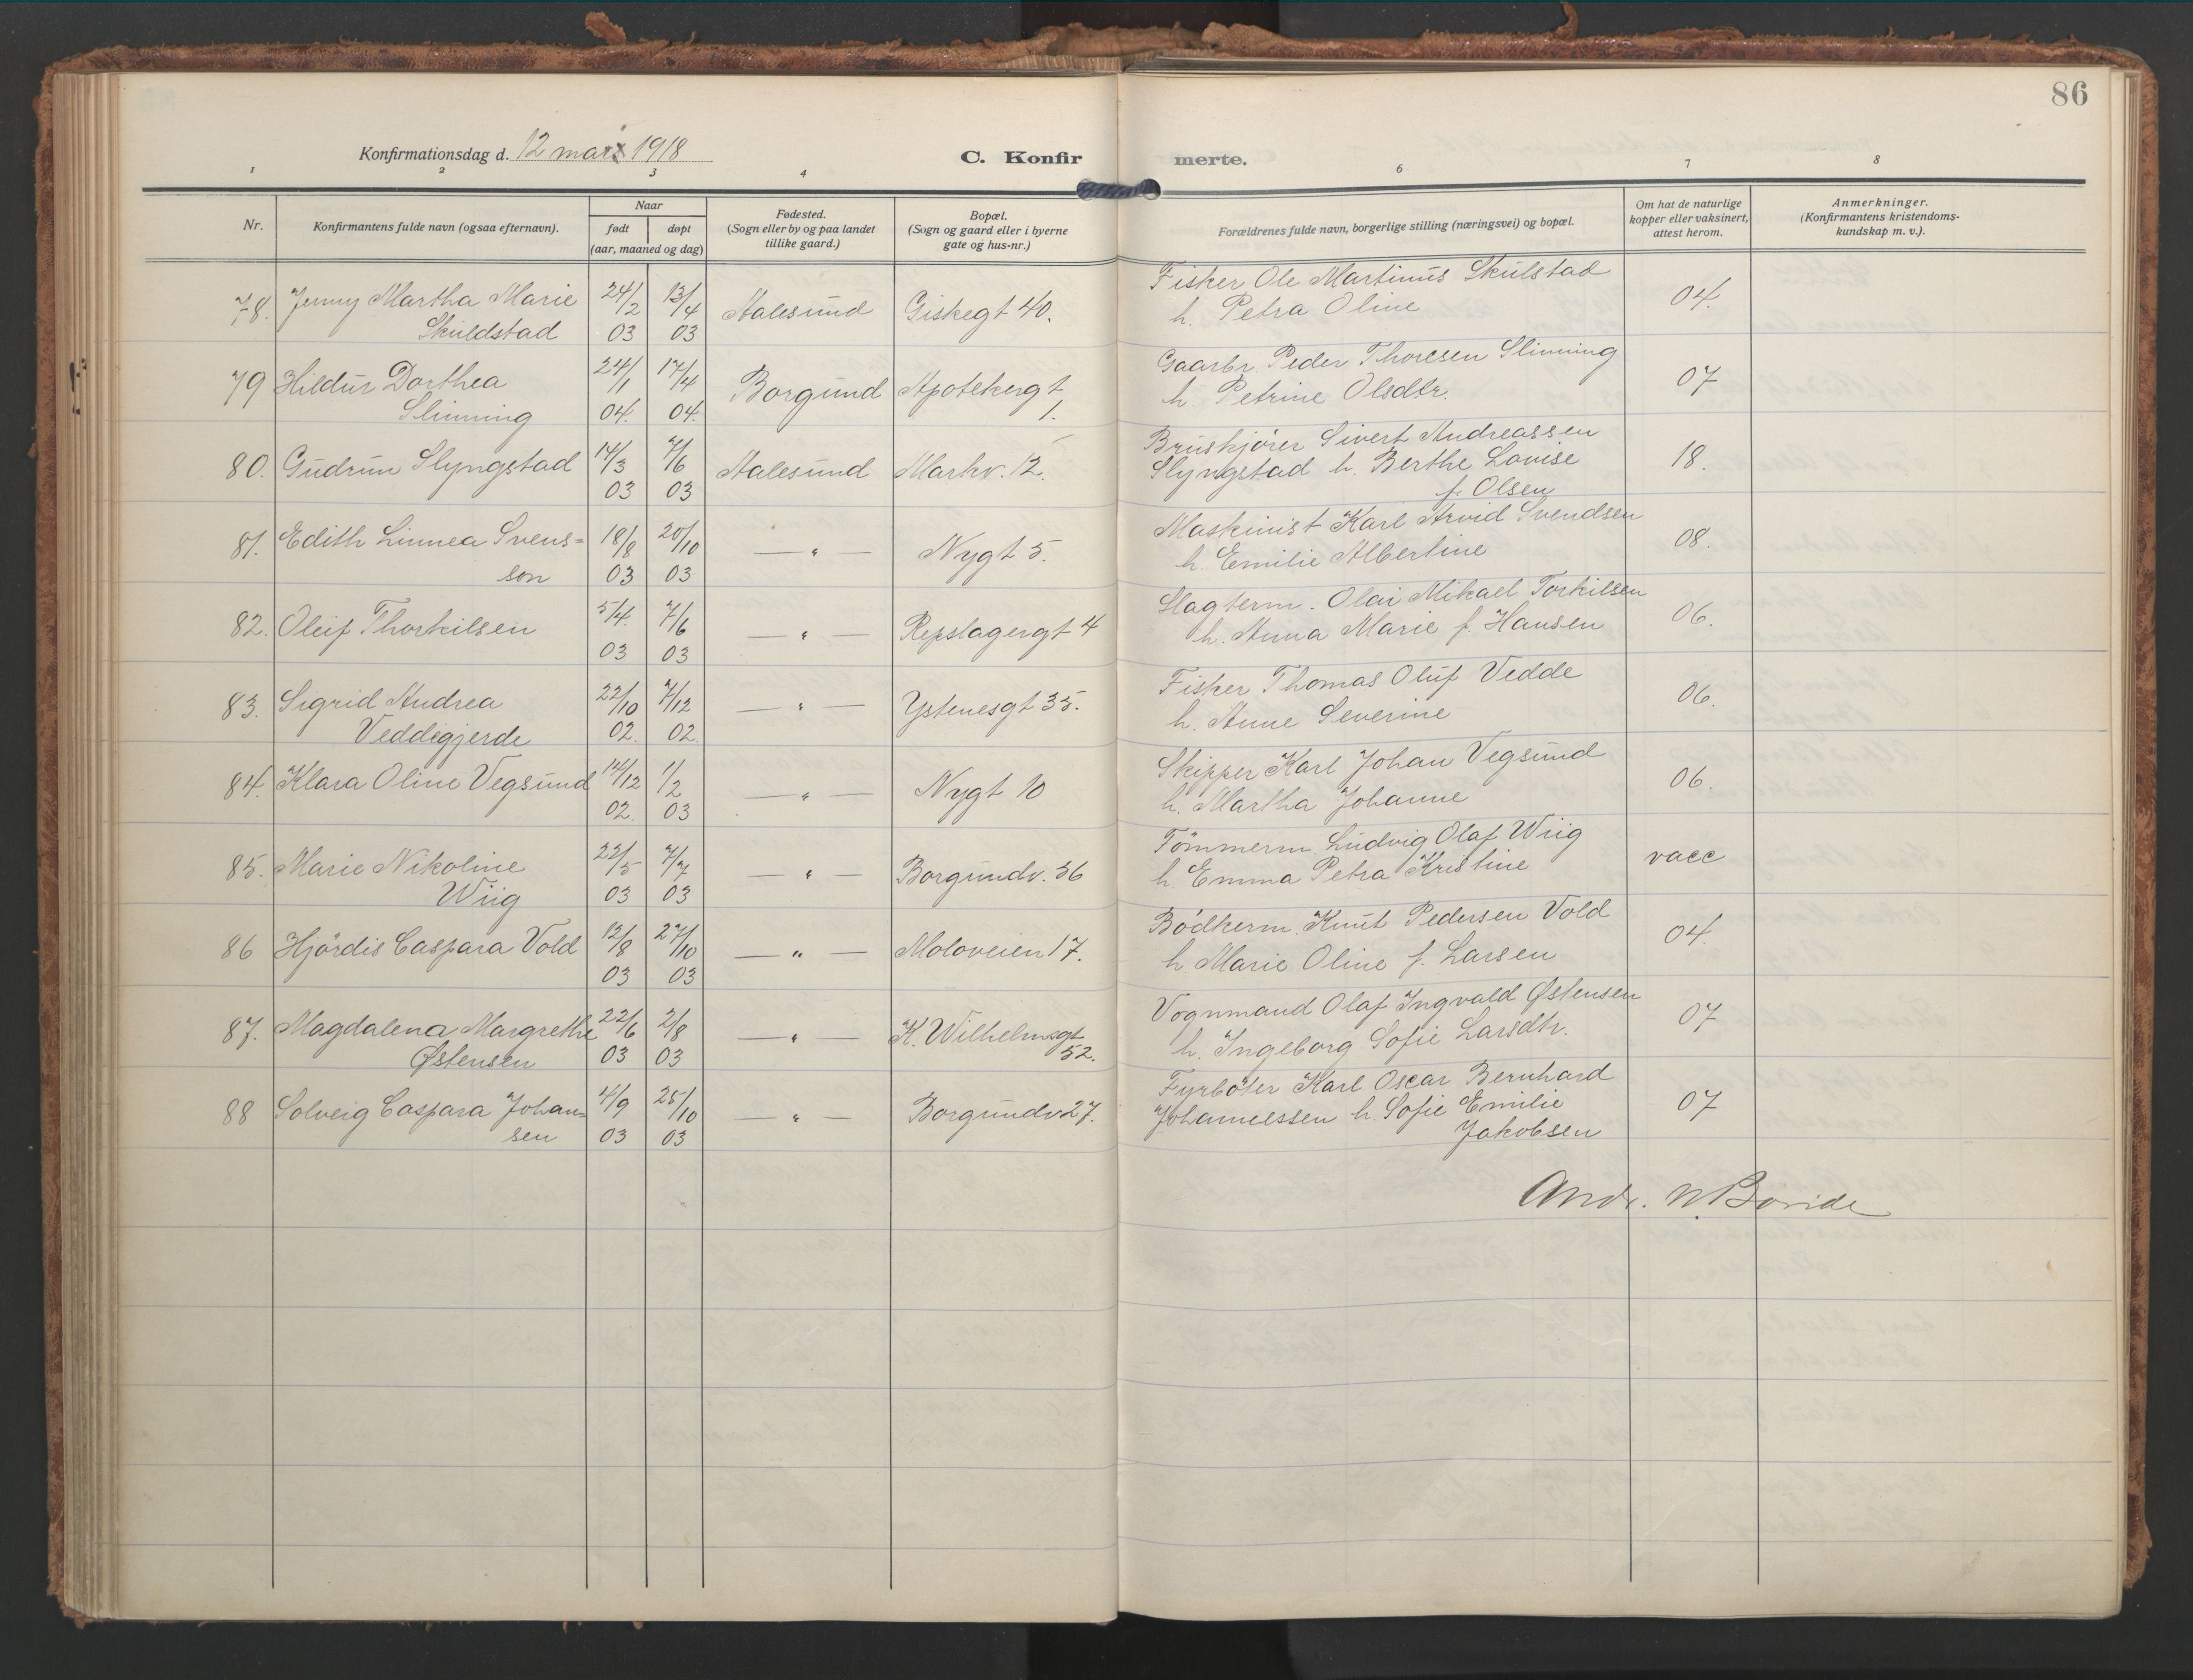 86
Konfirmationsdag d. 12 mars 1918
C. Konfirmerte.
1 2 3 4 6 7 8
Nr.
Konfirmantens fulde navn (ogsaa efternavn).
Naar
født døpt
(aar, maaned og dag)
Fødested.
(Sogn eller by og paa landet
tillike gaard.)
Bopæl.
(Sogn og gaard eller i byerne
gate og hus-nr.)
Forældrenes fulde navn, borgerlige stilling (næringsvei) og bopæl.
Om hat de naturlige
kopper eller vaksinert,
attest herom.
Anmerkninger.
(Konfirmantens kristendoms-
kundskap m. v.).
78. Jenny Martha Marie 24/2 13/4 Aalesund Giskegt 40. Fisker Ole Martinus Skulstad 04.
Skuldstad 03 03 h. Petra Oline
79 Hildur Dorthea 24/1 17/4 Borgund Apotekergt Gaarbr. Peder Thoresen Slinning 07
Slinning 04. 04. 1. h. Petrine Olsdtr.
80. Gudrun Slyngstad 14/3 7/6 Aalesund Markv. 12. Bruskjører Sivert Andreassen 18.
03 03 Slyngstad h. Berthe Lovise
f. Olsen
81. Edith Linnea Svens= 18/8 20/10 — " — Nygt 5. Maskinist Karl Arvid Svendsen 08.
son 03 03 h. Emilie Albertine
82. Oleif Thorkilsen 5/4. 7/6 — " — Repslagergt 4 Slagterm. Olai Mikael Torkilsen 06.
03 03 h. Anna Marie f. Hansen
83. Sigrid Andrea 22/10 7/12 — " — Ystenesgt 35. Fisker Thomas Oluf Vedde 06.
Veddigjerde 02. 02. h. Anne Severine
84. Klara Oline Vegsund 14/12 1/2 — " — Nygt 10 Skipper Karl Johan Vegsund 06.
02. 03 h. Martha Johanne
85. Marie Nikoline 22/5 7/7 — " — Borgundv. 36 Tömmerm. Ludvig Olaf Wiig vacc
Wiig 03 03 h. Emma Petra Kristine
86 Hjördis Caspara Vold 12/8 27/10 — " — Moloveien 17. Bödkerm. Knut Pedersen Vold 04.
03 03 h. Marie Oline f. Larsen
87. Magdalena Margrethe 22/6 2/8 — " — K. Wilhelmsgt Vognmand Olaf Ingvald Østensen 07
Østensen 03 03 52. h. Ingeborg Sofie Larsdtr.
88 Solveig Caspara Johan= 4/9 25/10 — " — Borgundv 27. Fyrböter Karl Oscar Bernhard 07
sen 03 03 Johannessen h. Sofie Emilie
Jakobsen
Andr. N.